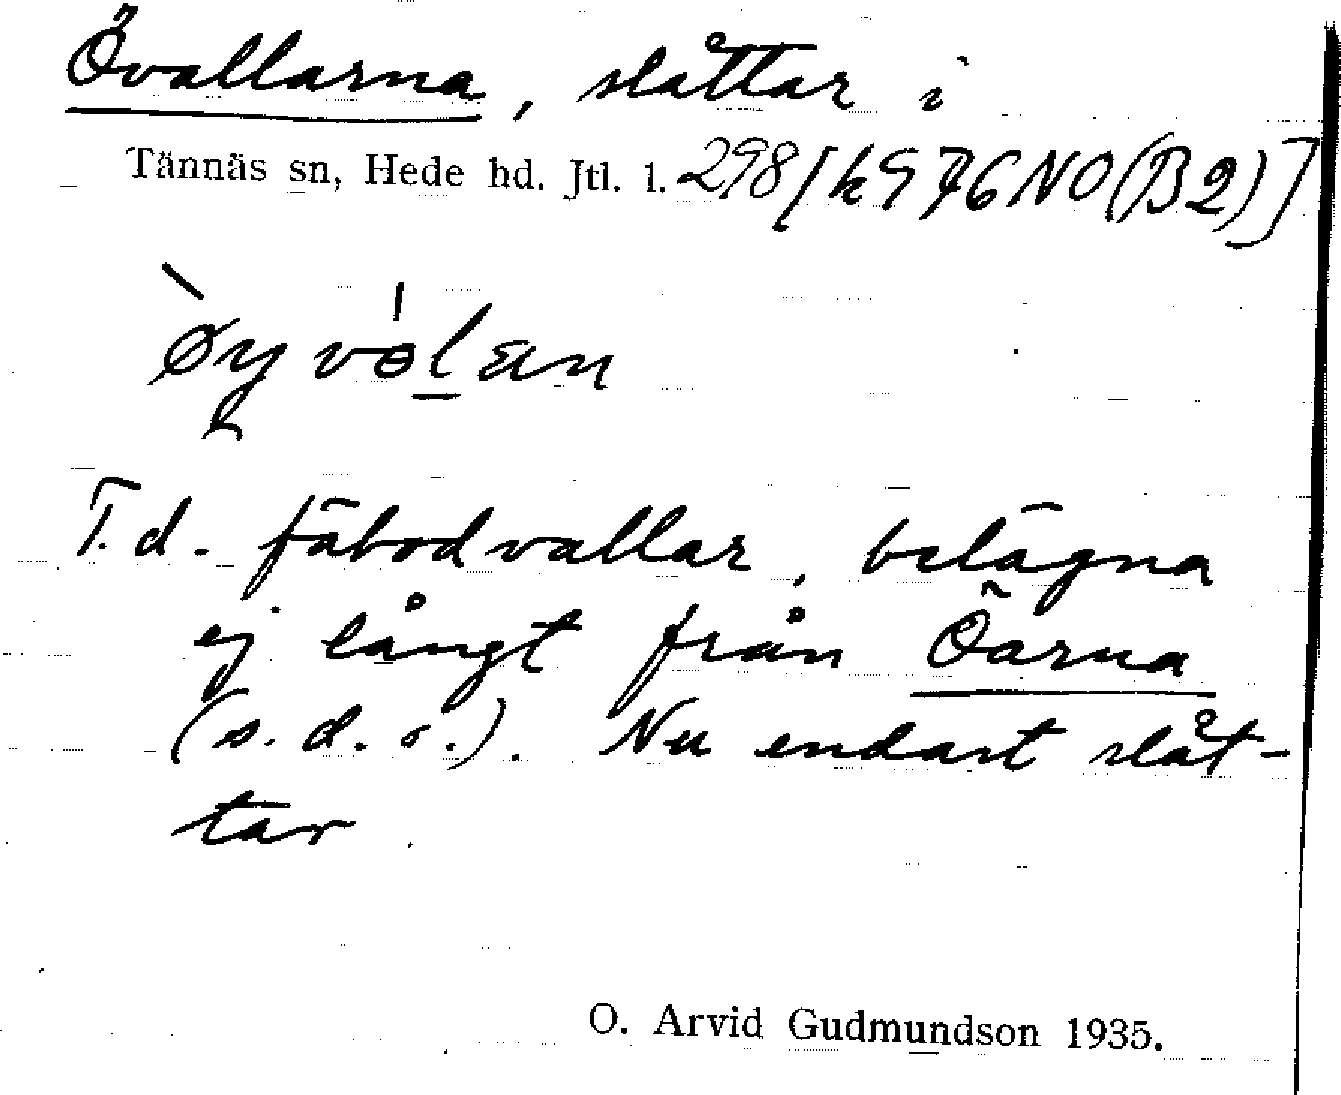 Övallarna, slåttar i
Tännäs sn, Hede hd. Jtl. l. 298 [k 976 NO (B2)]
T.d. fäbodvallar, belägna
ej långt från Öarna
(s.d.o.). Nu endast slåt-
tar.
O. Arvid Gudmundson 1935.